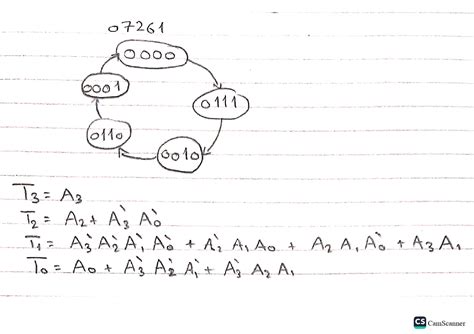 07261
0000
0001
0111
0110
0010
T3 = A3
T2 = A2 + A3` A0`
T1 = A3` A2` A1` A0` + A2` A1 A0 + A2 A1 A0` + A3 A1
T0 = A0 + A3` A2` A1` + A3` A2 A1
CS CamScanner